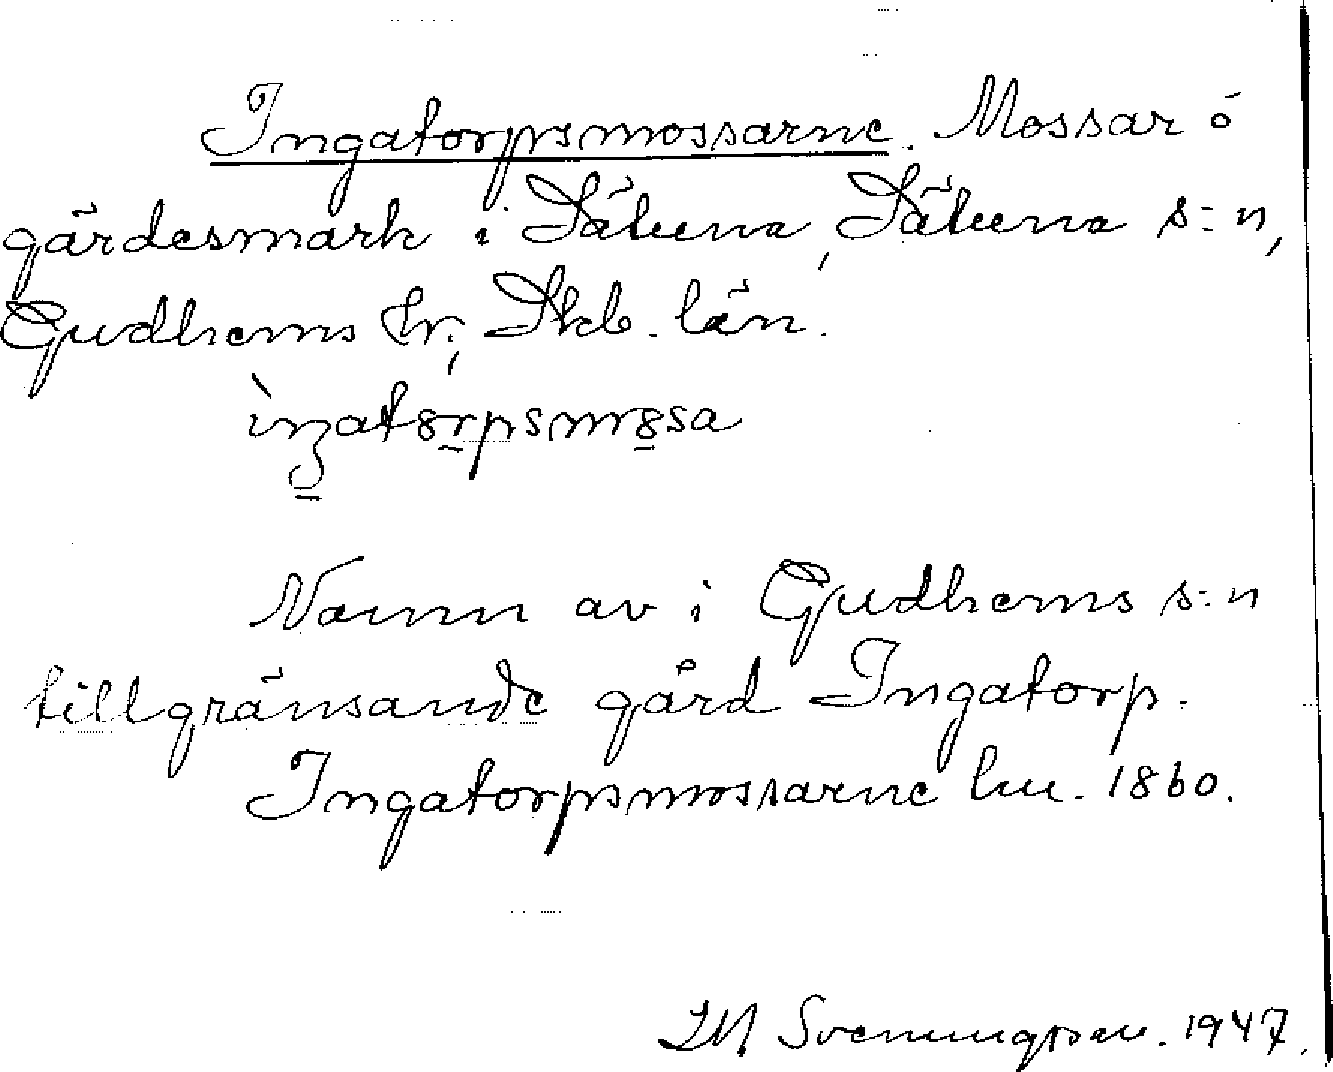 Ingatorpsmossarne. Mossar ó
gärdesmark i Sätuna, Sätuna s:n,
Gudhems hr; Skb. län.
Namn av i Gudhems s:n
tillgränsande gård Ingatorp.
Ingatorpsmossarne lm. 1860.
Svenungsson. 1947.